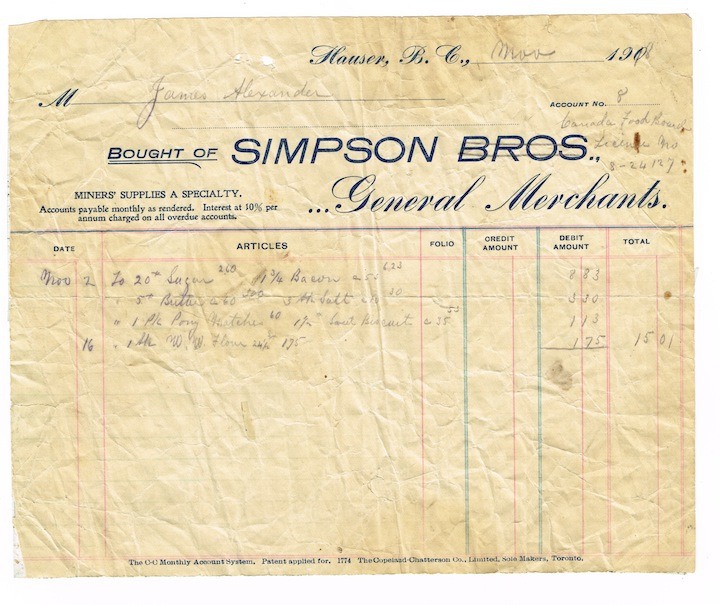 Hauser, B. C., Nov 1908
M James Alexander
ACCOUNT NO. 8
Canada Food Board
License No
8-24127
BOUGHT OF SIMPSON BROS.,
MINERS' SUPPLIES A SPECIALTY.
Accounts payable monthly as rendered. Interest at 10% per
annum charged on all overdue accounts.
...General Merchants.
DATE ARTICLES FOLIO CREDIT AMOUNT DEBIT AMOUNT TOTAL
Nov 2 To 20# Sugar 260 Bacon 623 8 83
" 5# Butter @ 60 300 3 Salt 30 3 30
" 1 Pk Pony Matches 60 1½# Biscuit @ 35 53 1 13
16 " 1 Sk W. W Flour 24½# 175 1 75 15 01
The C-C Monthly Account System. Patent applied for. 1774 The Copeland-Chatterson Co., Limited, Sole Makers, Toronto.